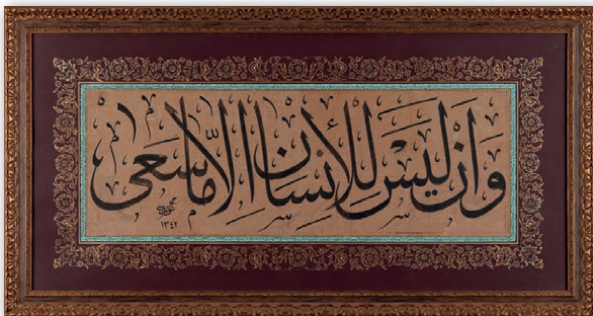 وَاَنْ لَيْسَ لِلْاِنْسَانِ اِلَّا مَا سَعٰى
١٣٤٢